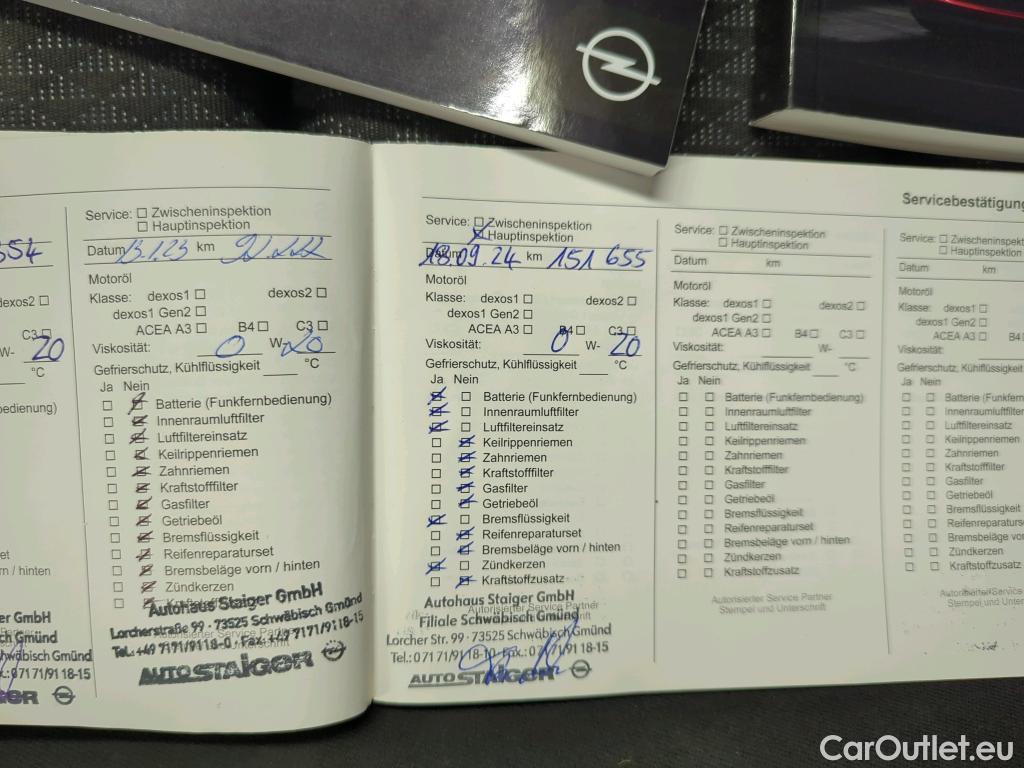 Servicebestätigung
354
C3
W- 20
°C
bedienung)
GmbH
ch Gmünd
hwäbisch Gmünd
071 71/91 18-15
Service: Zwischeninspektion
Hauptinspektion
Datum 13.1.23 km
Motoröl
Klasse: dexos1 dexos2
dexos1 Gen2
ACEA A3 B4 C3
Viskosität: 0 W- 20
Gefrierschutz, Kühlflüssigkeit °C
Ja Nein
Batterie (Funkfernbedienung)
Innenraumluftfilter
Luftfiltereinsatz
Keilrippenriemen
Zahnriemen
Kraftstofffilter
Gasfilter
Getriebeöl
Bremsflüssigkeit
Reifenreparaturset
Bremsbeläge vorn / hinten
Zündkerzen
Autohaus Staiger GmbH
Lorcherstraße 99 · 73525 Schwäbisch Gmünd
Tel.: +49 7171/9118-0 · Fax: +49 7171/9118-15
AUTO STAIGER
Service: Zwischeninspektion
Hauptinspektion
Datum 18.09.24 km 151 655
Motoröl
Klasse: dexos1 dexos2
dexos1 Gen2
ACEA A3 B4 C3
Viskosität: 0 W- 20
Gefrierschutz, Kühlflüssigkeit °C
Ja Nein
Batterie (Funkfernbedienung)
Innenraumluftfilter
Luftfiltereinsatz
Keilrippenriemen
Zahnriemen
Kraftstofffilter
Gasfilter
Getriebeöl
Bremsflüssigkeit
Reifenreparaturset
Bremsbeläge vorn / hinten
Zündkerzen
Kraftstoffzusatz
Autohaus Staiger GmbH
Autorisierter Service Partner
Filiale Schwäbisch Gmünd
Lorcher Str. 99 · 73525 Schwäbisch Gmünd
Tel.: 071 71/91 18-10 Fax.: 071 71/91 18-15
AUTO STAIGER
Service: Zwischeninspektion
Hauptinspektion
Datum km
Motoröl
Klasse: dexos1 dexos2
dexos1 Gen2
ACEA A3 B4 C3
Viskosität: W-
Gefrierschutz, Kühlflüssigkeit °C
Ja Nein
Batterie (Funkfernbedienung)
Innenraumluftfilter
Luftfiltereinsatz
Keilrippenriemen
Zahnriemen
Kraftstofffilter
Gasfilter
Getriebeöl
Bremsflüssigkeit
Reifenreparaturset
Bremsbeläge vorn / hinten
Zündkerzen
Kraftstoffzusatz
Autorisierter Service Partner
Stempel und Unterschrift
Service: Zwischeninspektion
Hauptinspektion
Datum km
Motoröl
Klasse: dexos1
dexos1 Gen2
ACEA A3 B4
Viskosität:
Gefrierschutz, Kühlflüssigkeit
Ja Nein
Batterie (Funkfern
Innenraumluftfilter
Luftfiltereinsatz
Keilrippenriemen
Zahnriemen
Kraftstofffilter
Gasfilter
Getriebeöl
Bremsflüssigkeit
Reifenreparaturset
Bremsbeläge vorn
Zündkerzen
Kraftstoffzusatz
Autorisierter Service
Stempel und Unter
CarOutlet.eu